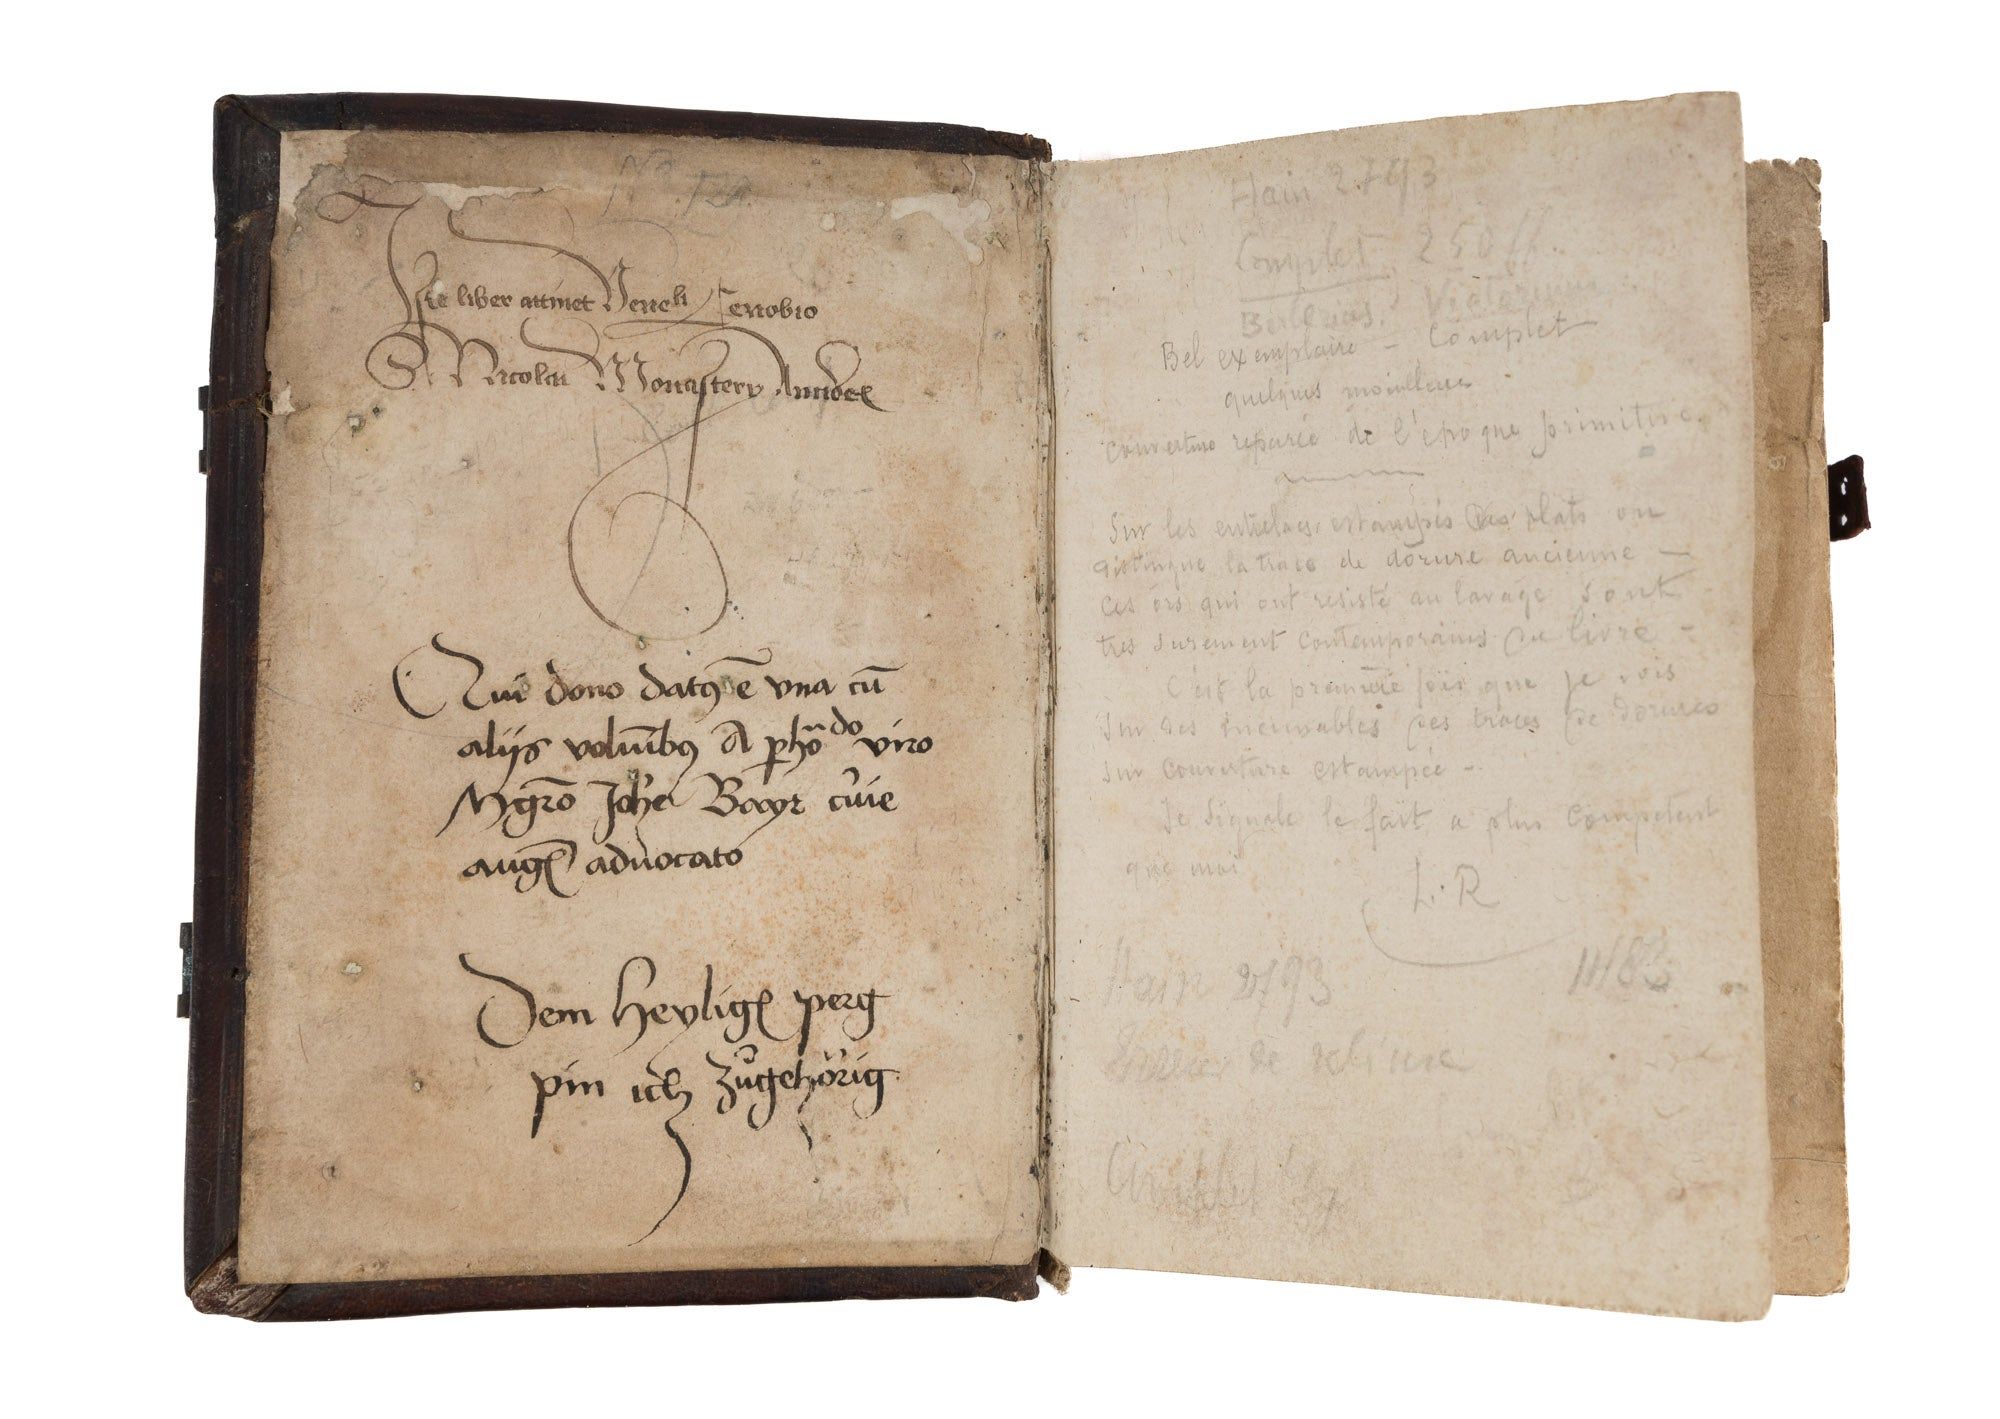 Iste liber attinet Veneli Cenobio
S. Nicolai Monastery Anndex
Cui dono datꝰ ē vna cū
alijs volūībꝰ A ꝓhōndo viro
Mgro Johē Bayr cūie
augꝭ aduocato
Dem heyligꝭ perg
pin ich zůgehörig
Hain 2793
Complet 250 ff.
Bel exemplaire - Complet
quelques mouillures
couverture reparée de l'époque primitive.
Sur les entrelacs estampés des plats on
distingue la trace de dorure ancienne -
Ces ors qui ont resisté au lavage sont
tres surement contemporains du livre -
C'est la première fois que je vois
sur des incunables des traces de dorures
sur couverture estampée -
Je signale le fait a plus competent
que moi
L. R
Hain 2793